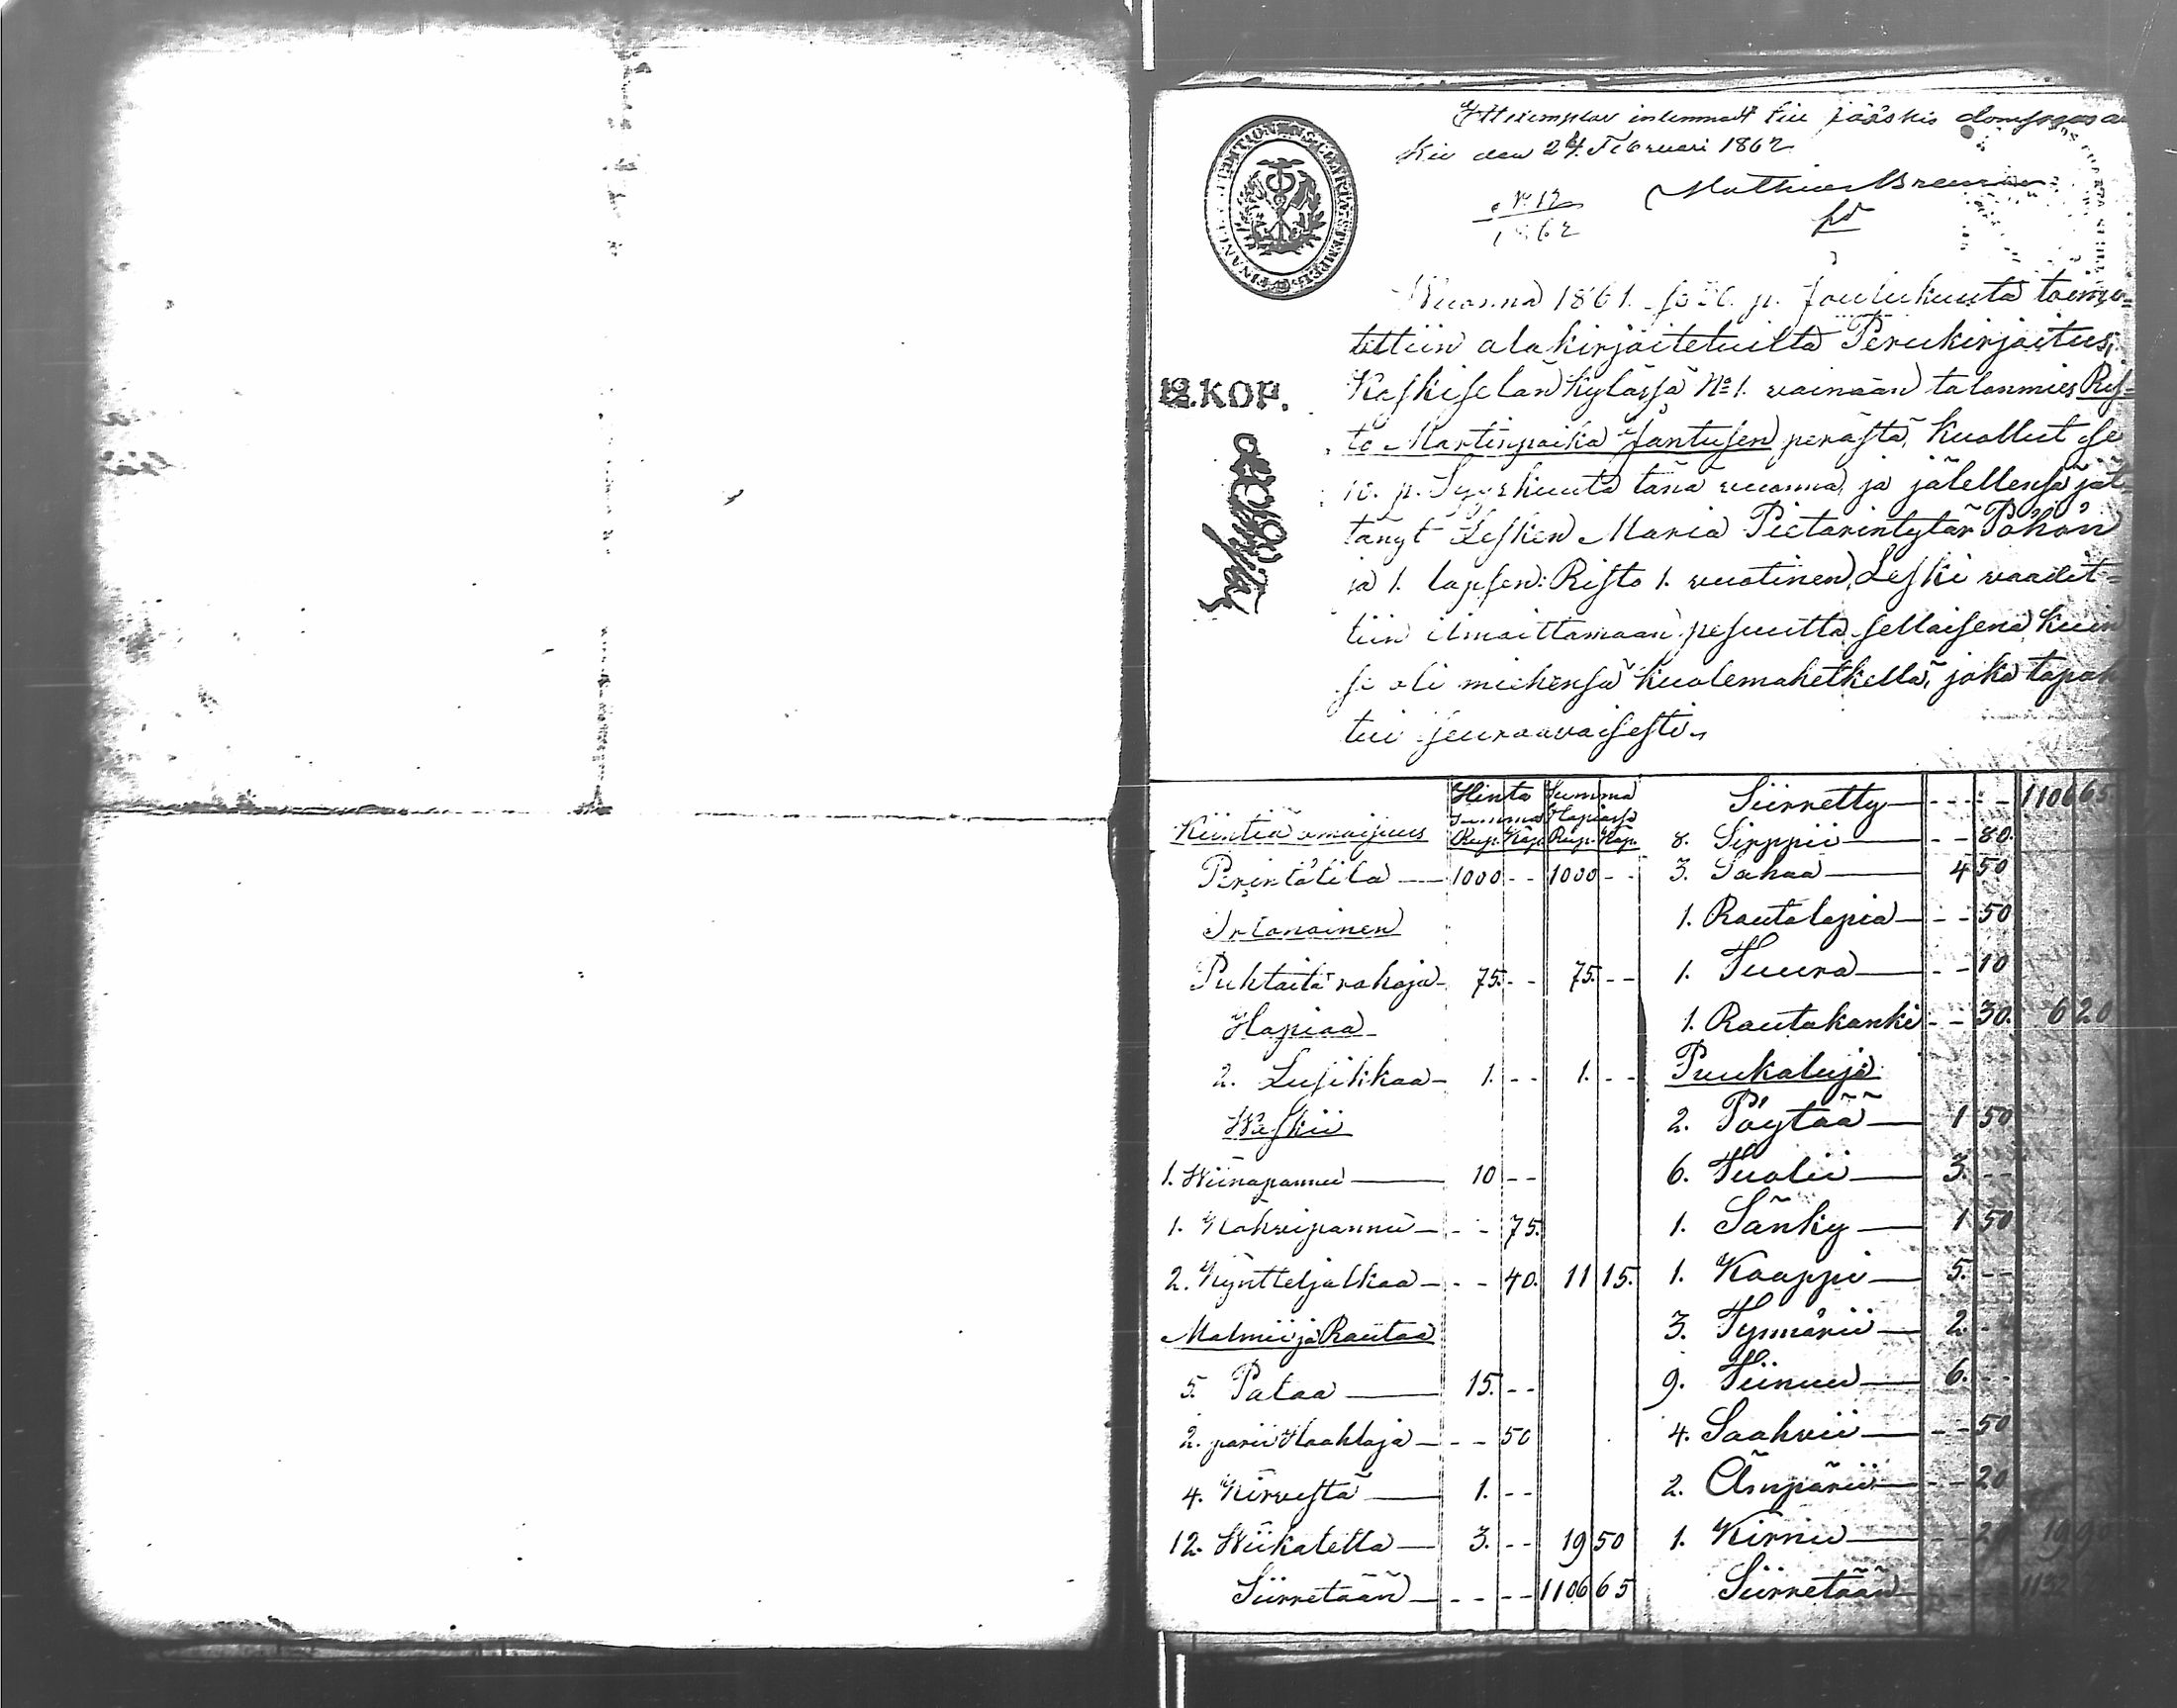 Ett exemplar inlemnadt till Jääskis domsagas
den 24 Februari 1862
No 12
1862
FINANCE EXPEDITIONENS CHARTÆ STEMPEL
12.KOP.
Wuonna 1861. p. Joulukuuta toimi-
tettiin alakirjoitetuilta Perukirjoitus,
Keskiselän kylässä No 1. vainaan talonmies Ris-
to Martinpoika Jantusen perästä, kuollut se
10. p. Syyskuuta tänä vuonna, ja jälellensä jät-
tänyt Lesken Maria Pietarintytär Pöhön
ja 1. lapsen: Risto 1. vuotinen, Leski vaadit-
tiin ilmoittamaan pesuutta sellaisena kuin
se oli miehensä kuolemahetkellä, joka tapah
tui seuraavaisesti.
Hinto Summa
Summa Hapiassa
Kiintiä omaisuus Rup. Kop. Rup. Kop.
Perintötila 1000 - - 1000 - -
Irtanainen
Puhtaita rahoja 75. - - 75. - -
Hapiaa
2. Lusikkaa 1. - - 1. - -
Waskii
1. Wiinapannu 10 - -
1. Kahvipannu - - 75.
2. Kyntteljalkaa - - 40. 11 15.
Malmii ja Rautaa
5. Pataa 15. - -
2. parii Haahloja - - 50
4. Kirvestä 1. - -
12. Wiikatetta 3. - - 19 50
Siirretään - - - - 1106 65
Siirretty - - - - 1106 65
8. Sirppii - - 80.
3. Sahaa 4 50
1. Rautalapia - - 50
1. Tuura - - 10
1. Rautakanki - - 30. 6 20
Puukaluja
2. Pöytää 1 50
6. Tuolii 3. - -
1. Sänky 1 50
1. Kaappi 5. - -
3. Tynnärii 2. - -
9. Tiinuu 6. - -
4. Saahvii - - 50
2. Ämpärii - - 20
1. Kirnu - - 20 19 9
Siirretään 1132